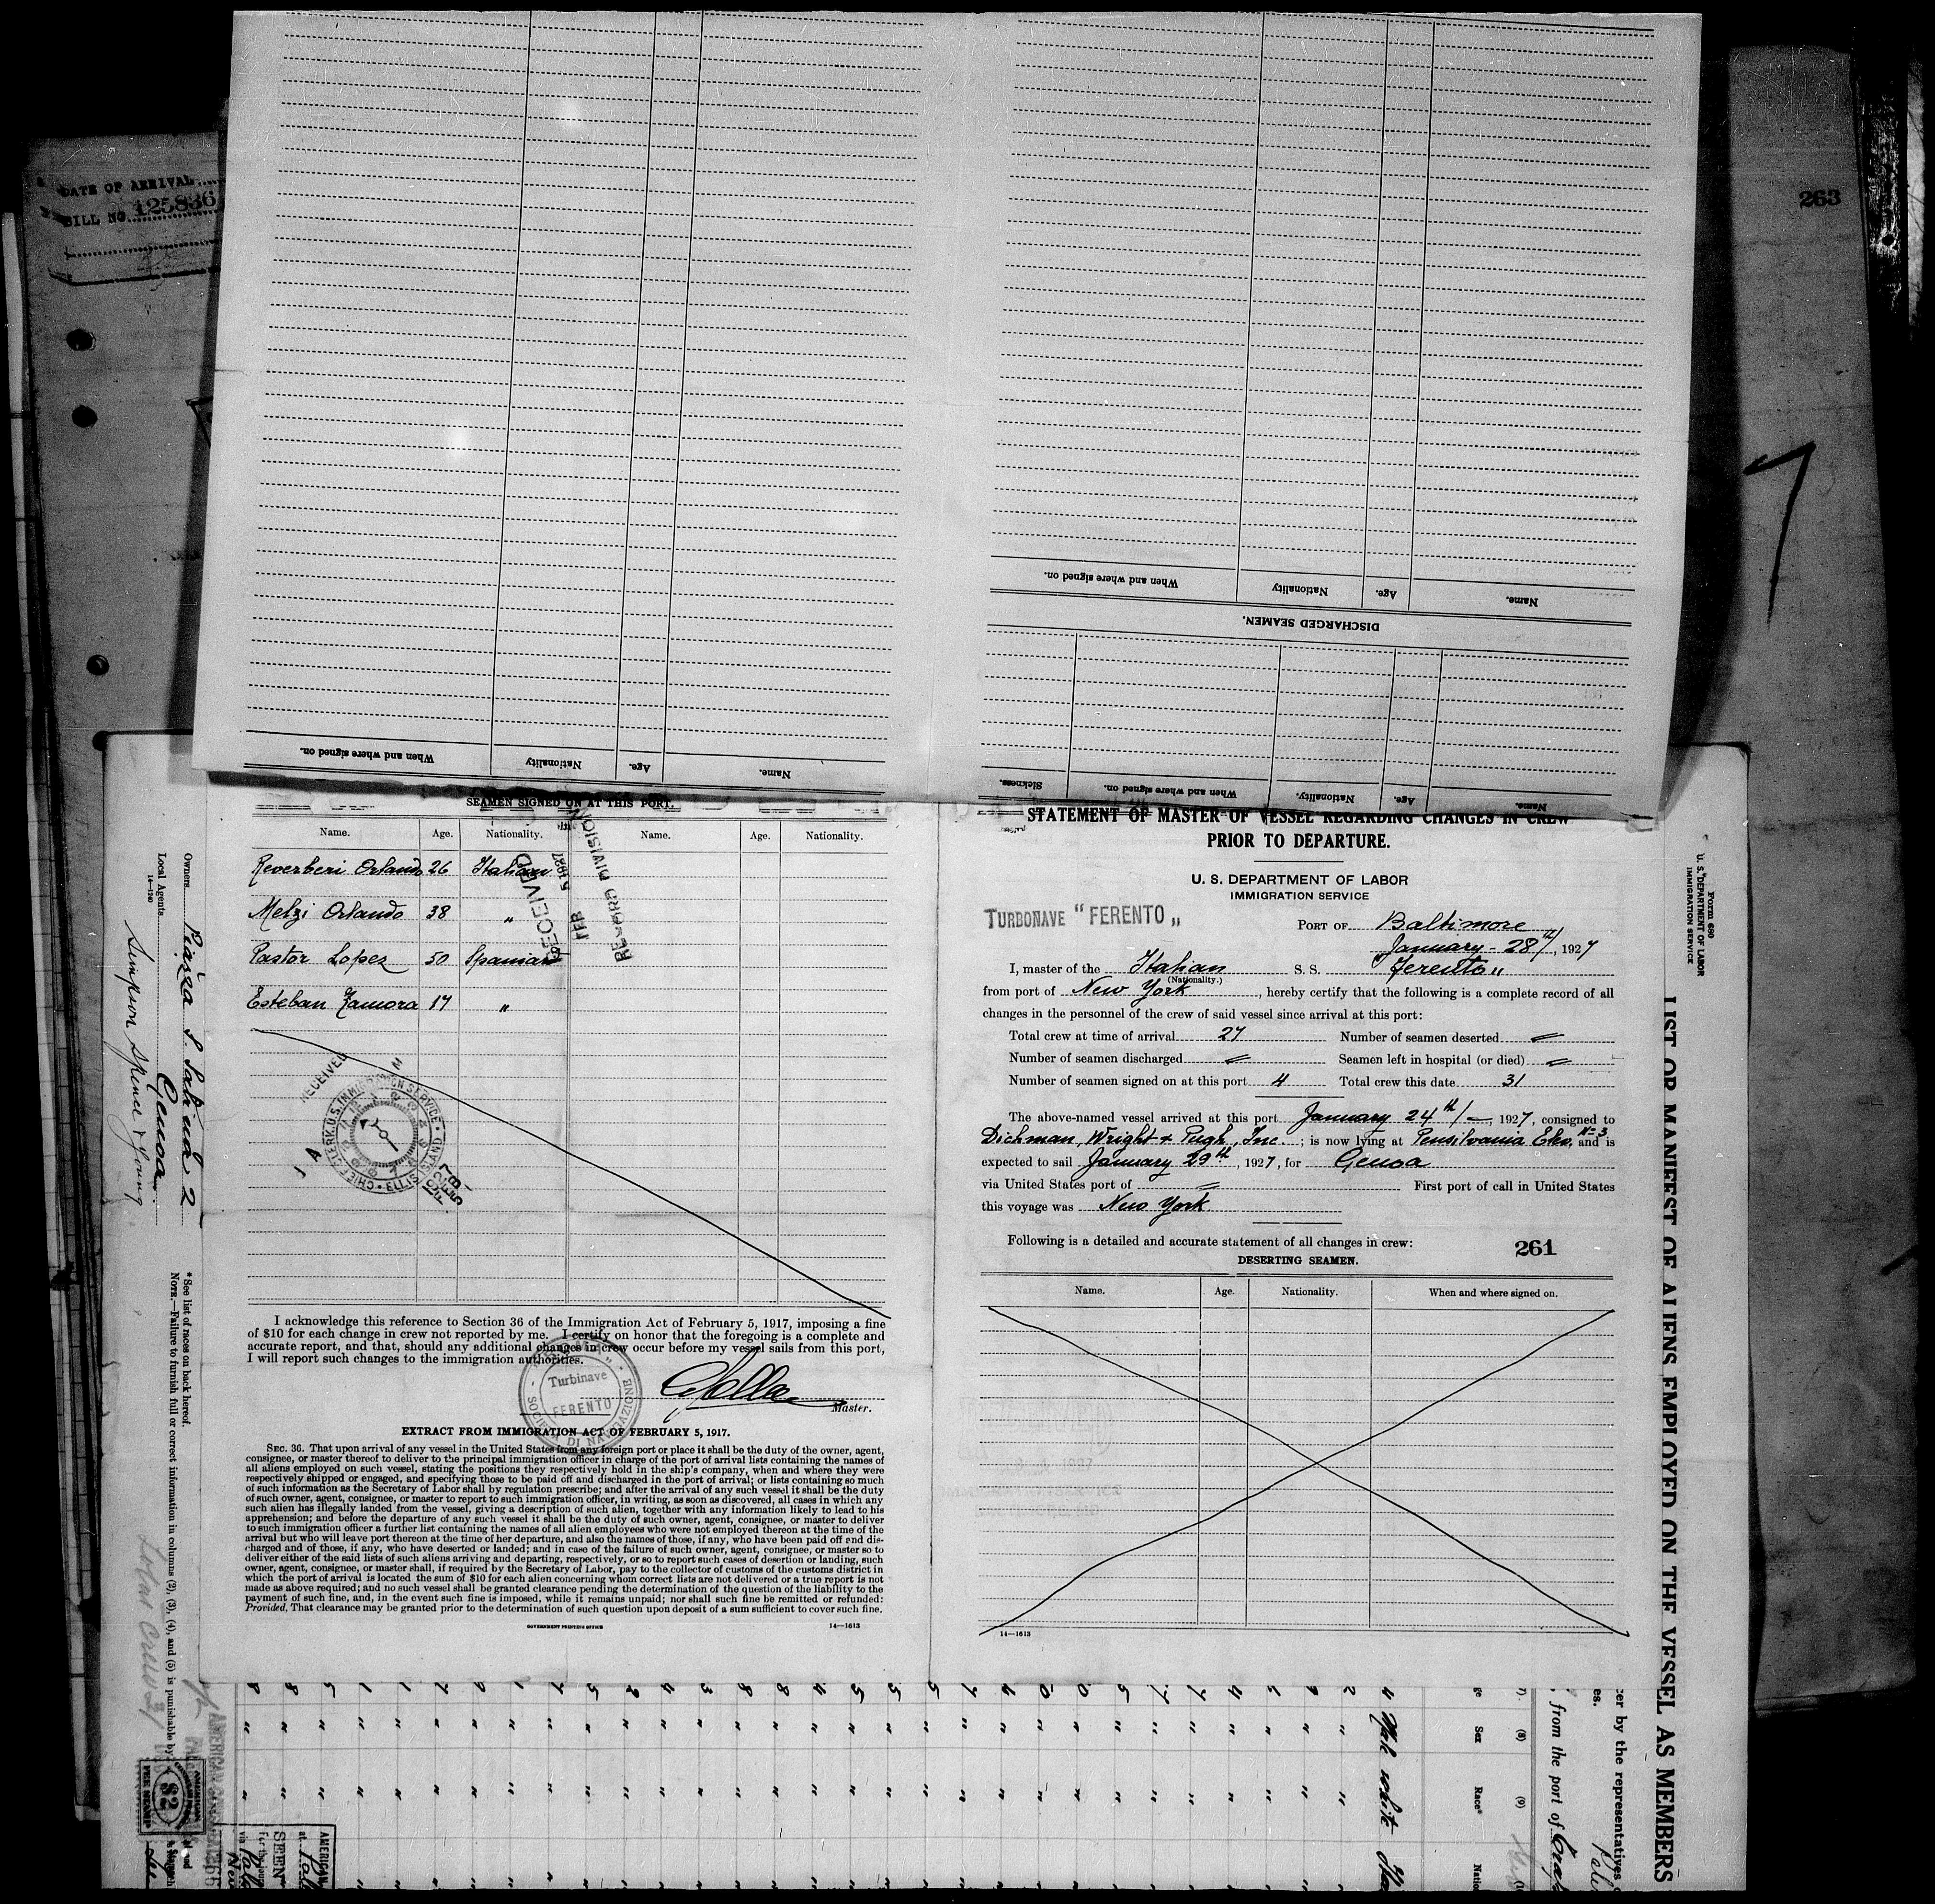 DATE OF ARRIVAL
BILL NO. 125836
263
7
When and where signed on.
Nationality
Age.
Name.
When and where signed on.
Nationality
Age.
Name.
DISCHARGED SEAMEN.
Sickness.
When and where signed on.
Nationality.
Age.
Name.
SEAMEN SIGNED ON AT THIS PORT.
Name. Age. Nationality. Name. Age. Nationality.
Reverberi Orlando 26 Italian
Melzi Orlando 38 "
Pastor Lopez 50 Spanian
Esteban Zamora 17 "
RECEIVED
FEB 5 1927
RECORD DIVISION
RECEIVED
CHIEF CLERK, U.S. IMMIGRATION SERVICE
I acknowledge this reference to Section 36 of the Immigration Act of February 5, 1917, imposing a fine
of $10 for each change in crew not reported by me. I certify on honor that the foregoing is a complete and
accurate report, and that, should any additional changes in crew occur before my vessel sails from this port,
I will report such changes to the immigration authorities.
Turbinave
FERENTO
SOCIETA DI NAVIGAZIONE
Master.
EXTRACT FROM IMMIGRATION ACT OF FEBRUARY 5, 1917.
SEC. 36. That upon arrival of any vessel in the United States from any foreign port or place it shall be the duty of the owner, agent,
consignee, or master thereof to deliver to the principal immigration officer in charge of the port of arrival lists containing the names of
all aliens employed on such vessel, stating the positions they respectively hold in the ship's company, when and where they were
respectively shipped or engaged, and specifying those to be paid off and discharged in the port of arrival; or lists containing so much
of such information as the Secretary of Labor shall by regulation prescribe; and after the arrival of any such vessel it shall be the duty
of such owner, agent, consignee, or master to report to such immigration officer, in writing, as soon as discovered, all cases in which any
such alien has illegally landed from the vessel, giving a description of such alien, together with any information likely to lead to his
apprehension; and before the departure of any such vessel it shall be the duty of such owner, agent, consignee, or master to deliver
to such immigration officer a further list containing the names of all alien employees who were not employed thereon at the time of the
arrival but who will leave port thereon at the time of her departure, and also the names of those, if any, who have been paid off and dis-
charged and of those, if any, who have deserted or landed; and in case of the failure of such owner, agent, consignee, or master so to
deliver either of the said lists of such aliens arriving and departing, respectively, or so to report such cases of desertion or landing, such
owner, agent, consignee, or master shall, if required by the Secretary of Labor, pay to the collector of customs of the customs district in
which the port of arrival is located the sum of $10 for each alien concerning whom correct lists are not delivered or a true report is not
made as above required; and no such vessel shall be granted clearance pending the determination of the question of the liability to the
payment of such fine, and, in the event such fine is imposed, while it remains unpaid; nor shall such fine be remitted or refunded:
Provided, That clearance may be granted prior to the determination of such question upon deposit of a sum sufficient to cover such fine.
GOVERNMENT PRINTING OFFICE
14—1613
STATEMENT OF MASTER OF VESSEL REGARDING CHANGES IN CREW
PRIOR TO DEPARTURE.
U. S. DEPARTMENT OF LABOR
IMMIGRATION SERVICE
TURBONAVE "FERENTO"
PORT OF Baltimore
January - 28th/, 1927
I, master of the Italian S. S. "Ferento"
(Nationality.)
from port of New York, hereby certify that the following is a complete record of all
changes in the personnel of the crew of said vessel since arrival at this port:
Total crew at time of arrival 27 Number of seamen deserted =
Number of seamen discharged = Seamen left in hospital (or died) =
Number of seamen signed on at this port 4 Total crew this date 31
The above-named vessel arrived at this port January 24th/—, 1927, consigned to
Dichman, Wright & Pugh, Inc.; is now lying at Pensilvania Elev. Nº 3, and is
expected to sail January 29th, 1927, for Genoa
via United States port of = First port of call in United States
this voyage was New York
Following is a detailed and accurate statement of all changes in crew:
261
DESERTING SEAMEN.
Name. Age. Nationality. When and where signed on.
14—1613
Form 680
U. S. DEPARTMENT OF LABOR
IMMIGRATION SERVICE
LIST OR MANIFEST OF ALIENS EMPLOYED ON THE VESSEL AS MEMBERS
Owners Piazza S. Sabina 2
Genoa
Local Agents Simpson Spence & Young
14—1240
* See list of races on back hereof.
NOTE.—Failure to furnish full or correct information in columns (2), (3), (4), and (5) is punishable by
Total Crew 31
from the port of
er by the representatives
(8) (9)
Sex Race*
Male white
AMERICAN
SEEN
$2
FEE STAMP